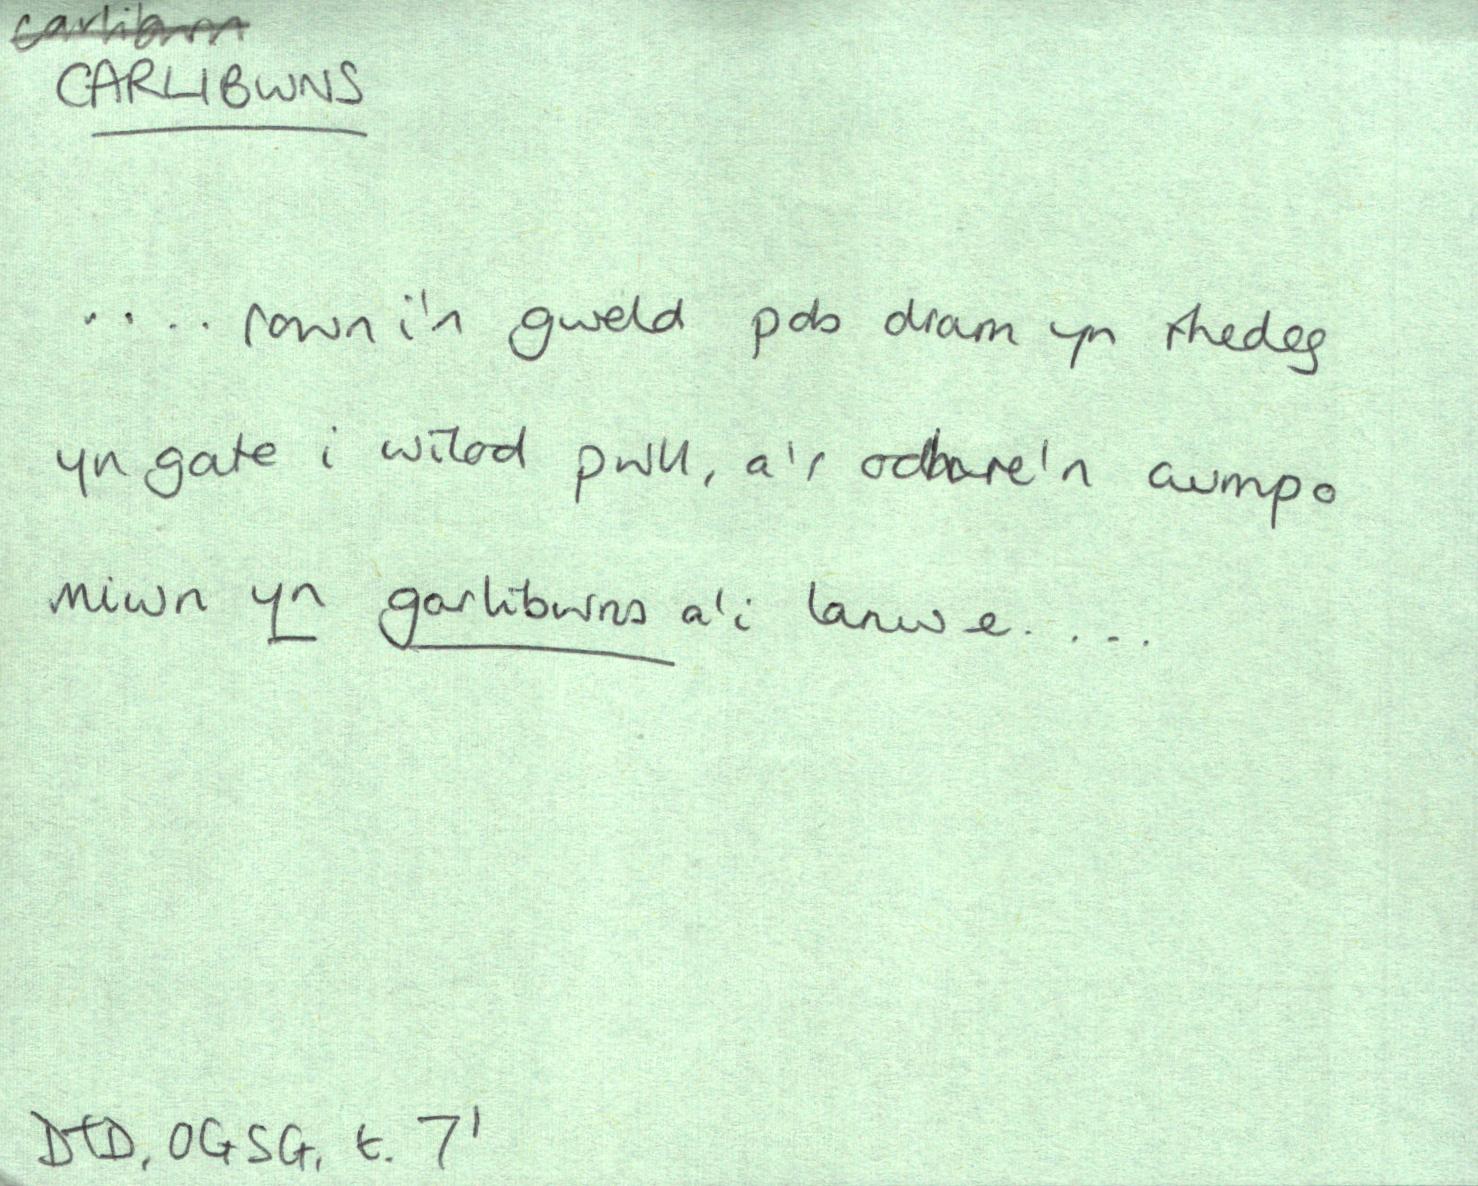 carlibwn
CARLIBWNS
.... rown i'n gweld pob dram yn rhedeg
yn gate i wilod pwll, a'r odbare'n cwmpo
miwn yn garlibwns a'i lanw e....
DTD, OGSG, t. 71